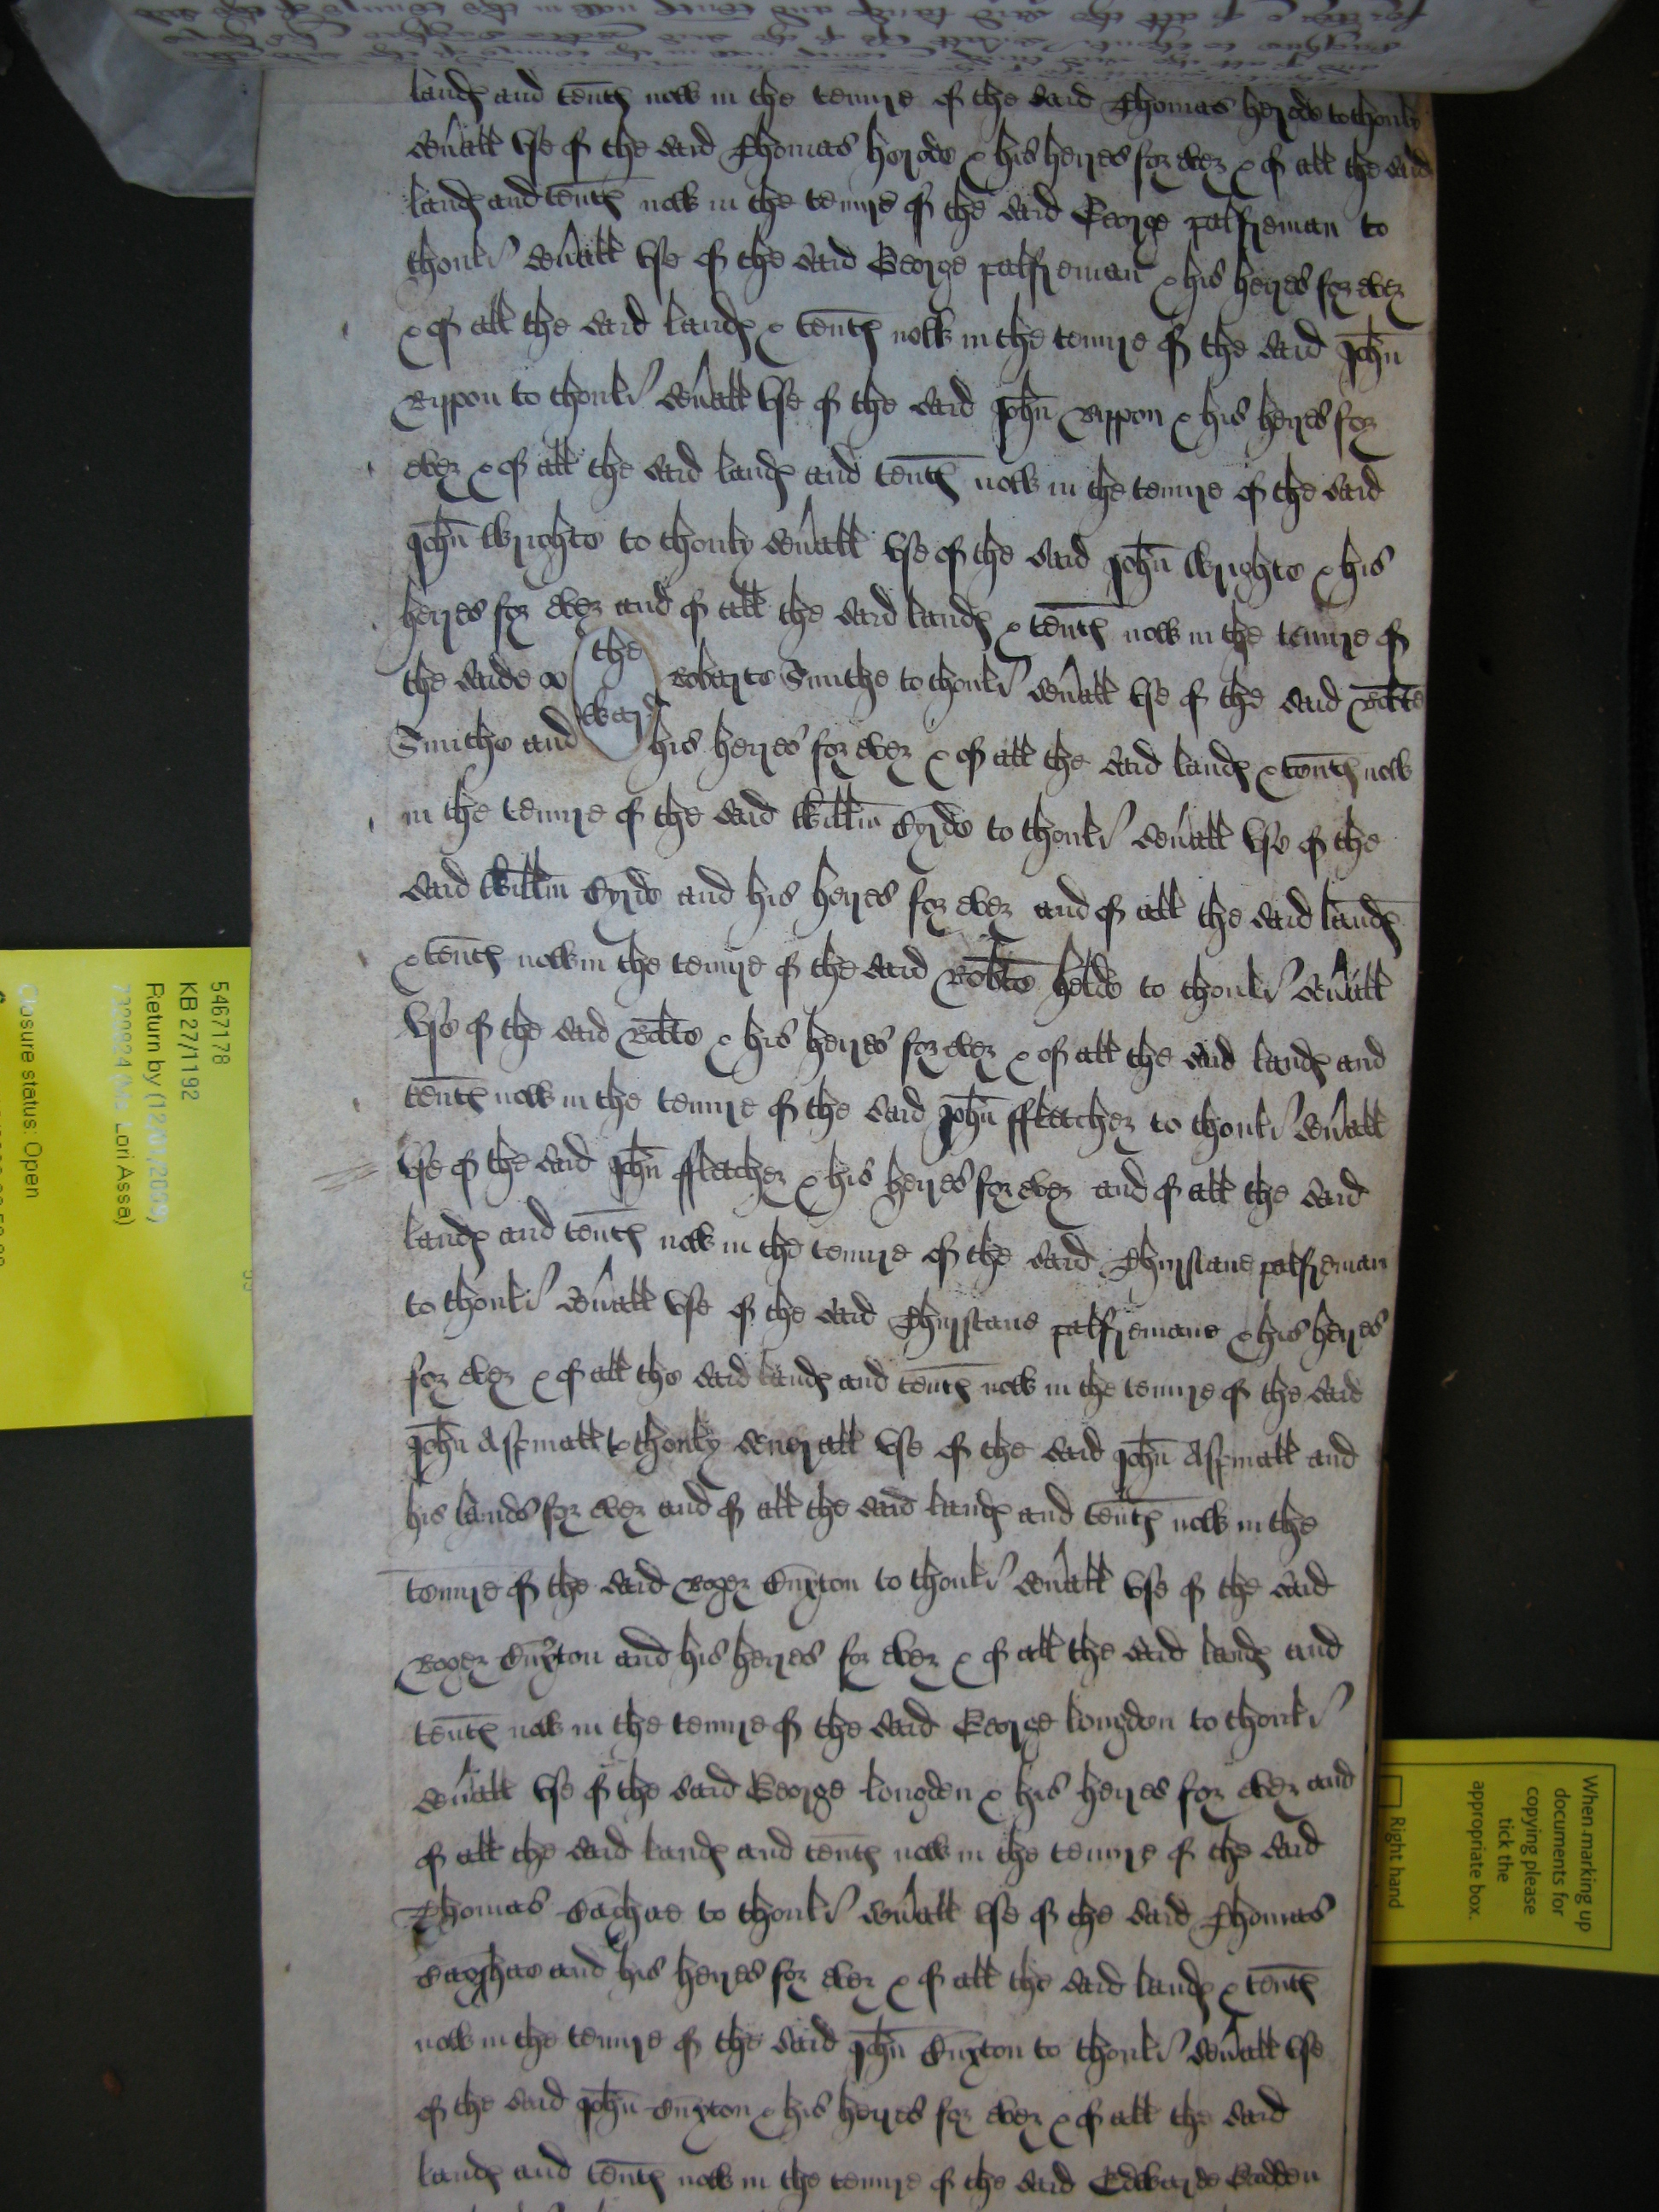 land and tent now in the tenure of the said Thomas herode to thonly
seuall vse of the said Thomas herode & his heyres for ever & of all the said
land and tent now in the tenure of the said George palfreman to
thonly seuall vse of the said George palfreman & his heyres for ever
& of all the said land & tent now in the tenure of the said John
Ryppon to thonly seuall vse of the said John Ryppon & his heyres for
ever & of all the said land and tent now in the tenure of the said
John Wryghte to thonly seuall vse of the said John Wryghte & his
heyres for ever and of all the said land & tent now in the tenure of
the saide the Roberte Smithe to thonly seuall vse of the said Robte
Smithe and his heyres for ever & of all the said land & tent now
in the tenure of the said Willm to thonly seuall vse of the
said Willm and his heyres for ever and of all the said land
& tent now in the tenure of the said Robte helde to thonly seuall
vse of the said Robte & his heyres for ever & of all the said land and
tent now in the tenure of the said John ffletcher to thonly seuall
vse of the said John ffletcher & his heyres for ever and of all the said
land and tent now in the tenure of the said Thurstane palfreman
to thonly seuall vse of the said Thurstane palfremane & his heyres
for ever & of all the said land and tent now in the tenure of the said
John Aspinall to thonly severall vse of the said John Aspinall and
his lands for ever and of all the said land and tent now in the
tenure of the said Roger to thonly seuall vse of the said
Roger and his heyres for ever & of all the said land and
tent now in the tenure of the said George longdon to thonly
seuall vse of the said George longden & his heyres for ever and
of all the said land and tent now in the tenure of the said
Thomas to thonly seuall vse of the said Thomas
and his heyres for ever & of all the said land & tent
now in the tenure of the said John to thonly seuall vse
of the said John & his heyres for ever & of all the said
land and tent now in the tenure of the said Edwarde
5467178
KB 27/1192
Return by (12/01/2009)
(Ms. Lori Assa)
Closure status: Open
When marking up
documents for
copying please
tick the
appropriate box.
Right hand